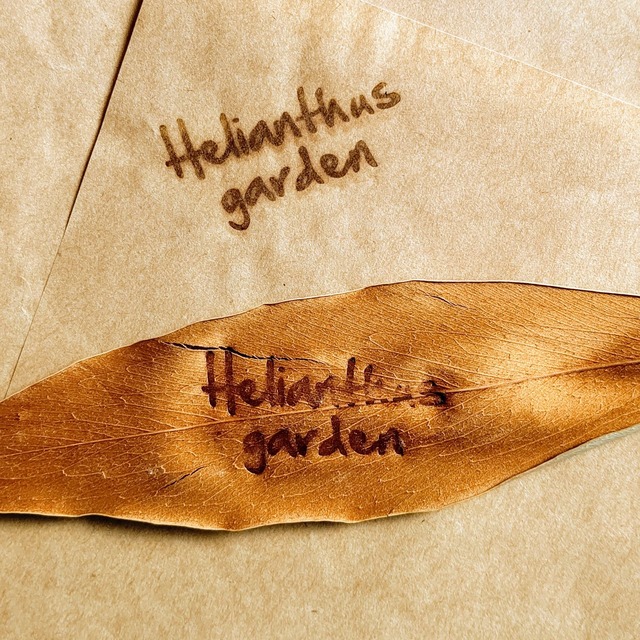 Helianthus
garden
Helianthus
garden